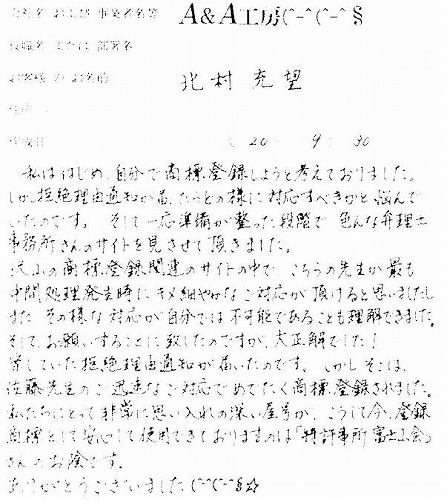 会社名 および 事業者名等 A&A工房(^-^(^-^§
役職名 または 部署名
お客様 の お名前 北村 充望
作成日 20 9 30
私ははじめ、自分で商標登録しようと考えておりました。
しかし拒絶理由通知が届いたらどの様に対応すべきかと悩んで
いたのです。そして一応準備が整った段階で 色んな弁理士
事務所さんのサイトを見させて頂きました。
沢山の商標登録関連のサイトの中で こちらの先生が最も
中間処理発生時にキメ細やかなご対応が頂けると思いましたし
また その様な対応が自分では不可能であることも理解できました。
そして、お願いすることに致したのですが、大正解でした!
案じていた拒絶理由通知が届いたのです。しかしそこは、
佐藤先生のご迅速なご対応でめでたく商標登録されました。
私たちにとって非常に思い入れの深い屋号が、こうして今、登録
商標として安心して使用できておりますのは「特許事務所富士山会」
さんのお陰です。
ありがとうございました(^-^(^-^§☆